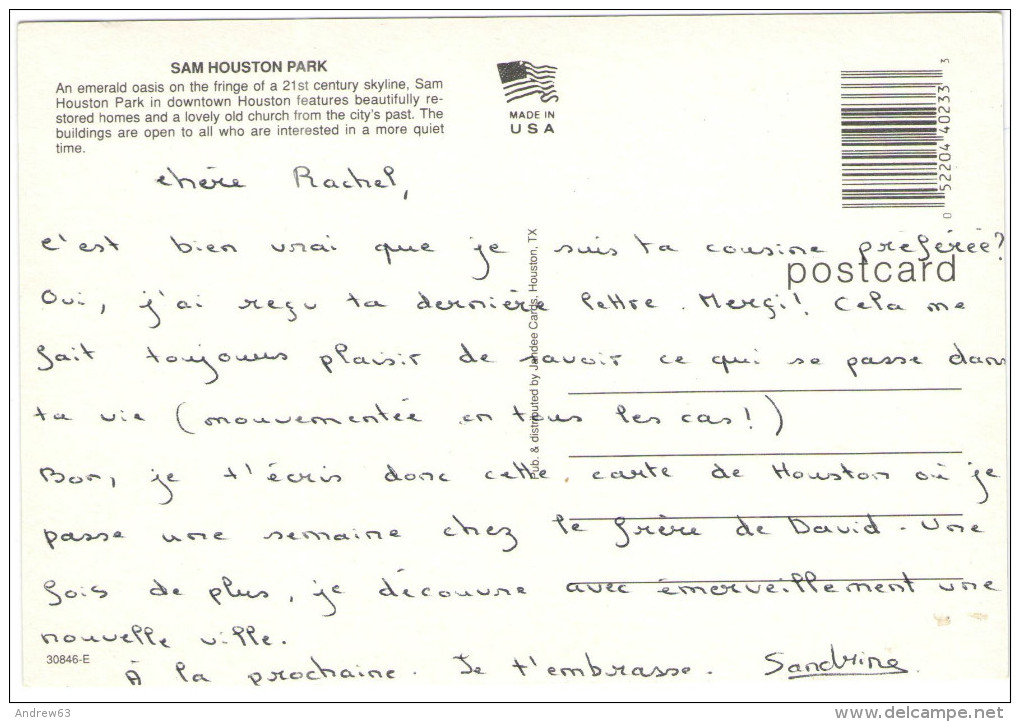 SAM HOUSTON PARK
An emerald oasis on the fringe of a 21st century skyline, Sam
Houston Park in downtown Houston features beautifully re-
stored homes and a lovely old church from the city's past. The
buildings are open to all who are interested in a more quiet
time.
MADE IN
USA
0 52204 40233 3
postcard
Pub. & distributed by Jandee Cards, Houston, TX
chère Rachel,
c'est bien vrai que je suis ta cousine préférée?
Oui, j'ai reçu ta dernière lettre. Merçi! Cela me
fait toujours plaisir de savoir ce qui se passe dans
ta vie (mouvementée en tous les cas!)
Bon, je t'écris donc cette carte de Houston où je
passe une semaine chez le frère de David. Une
fois de plus, je découvre avec émerveillement une
nouvelle ville.
30846-E
À la prochaine. Je t'embrasse. Sandrine
Andrew63
www.delcampe.net